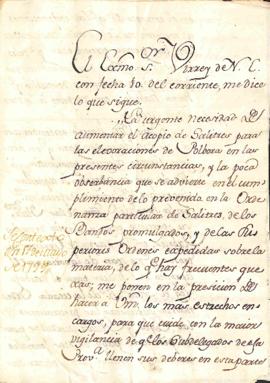 El Exmo. Sr. Virrey de N. E.
con fecha 10. del corriente, me dice
lo que sigue.
"La urgente necesidad de
aumentar el acopio de Salitres para
las elevoraciones de Polbora en las
presentes circunstancias, y la poca
observancia que se advierte en el cum
plimiento de lo prevenido en la Orde
nanza particular de Salitres, de los
Vandos promulgados, y de las Su
periores Ordenes expedidas sobre la
materia, de lo q. hay frecuentes que
xas; me ponen en la precision de
hacer a Vmd. los mas estrechos en
cargos, para que cuide con la maior
vigilancia de q. los Subdelegados de esa
Prova. llenen sus deberes en esta parte